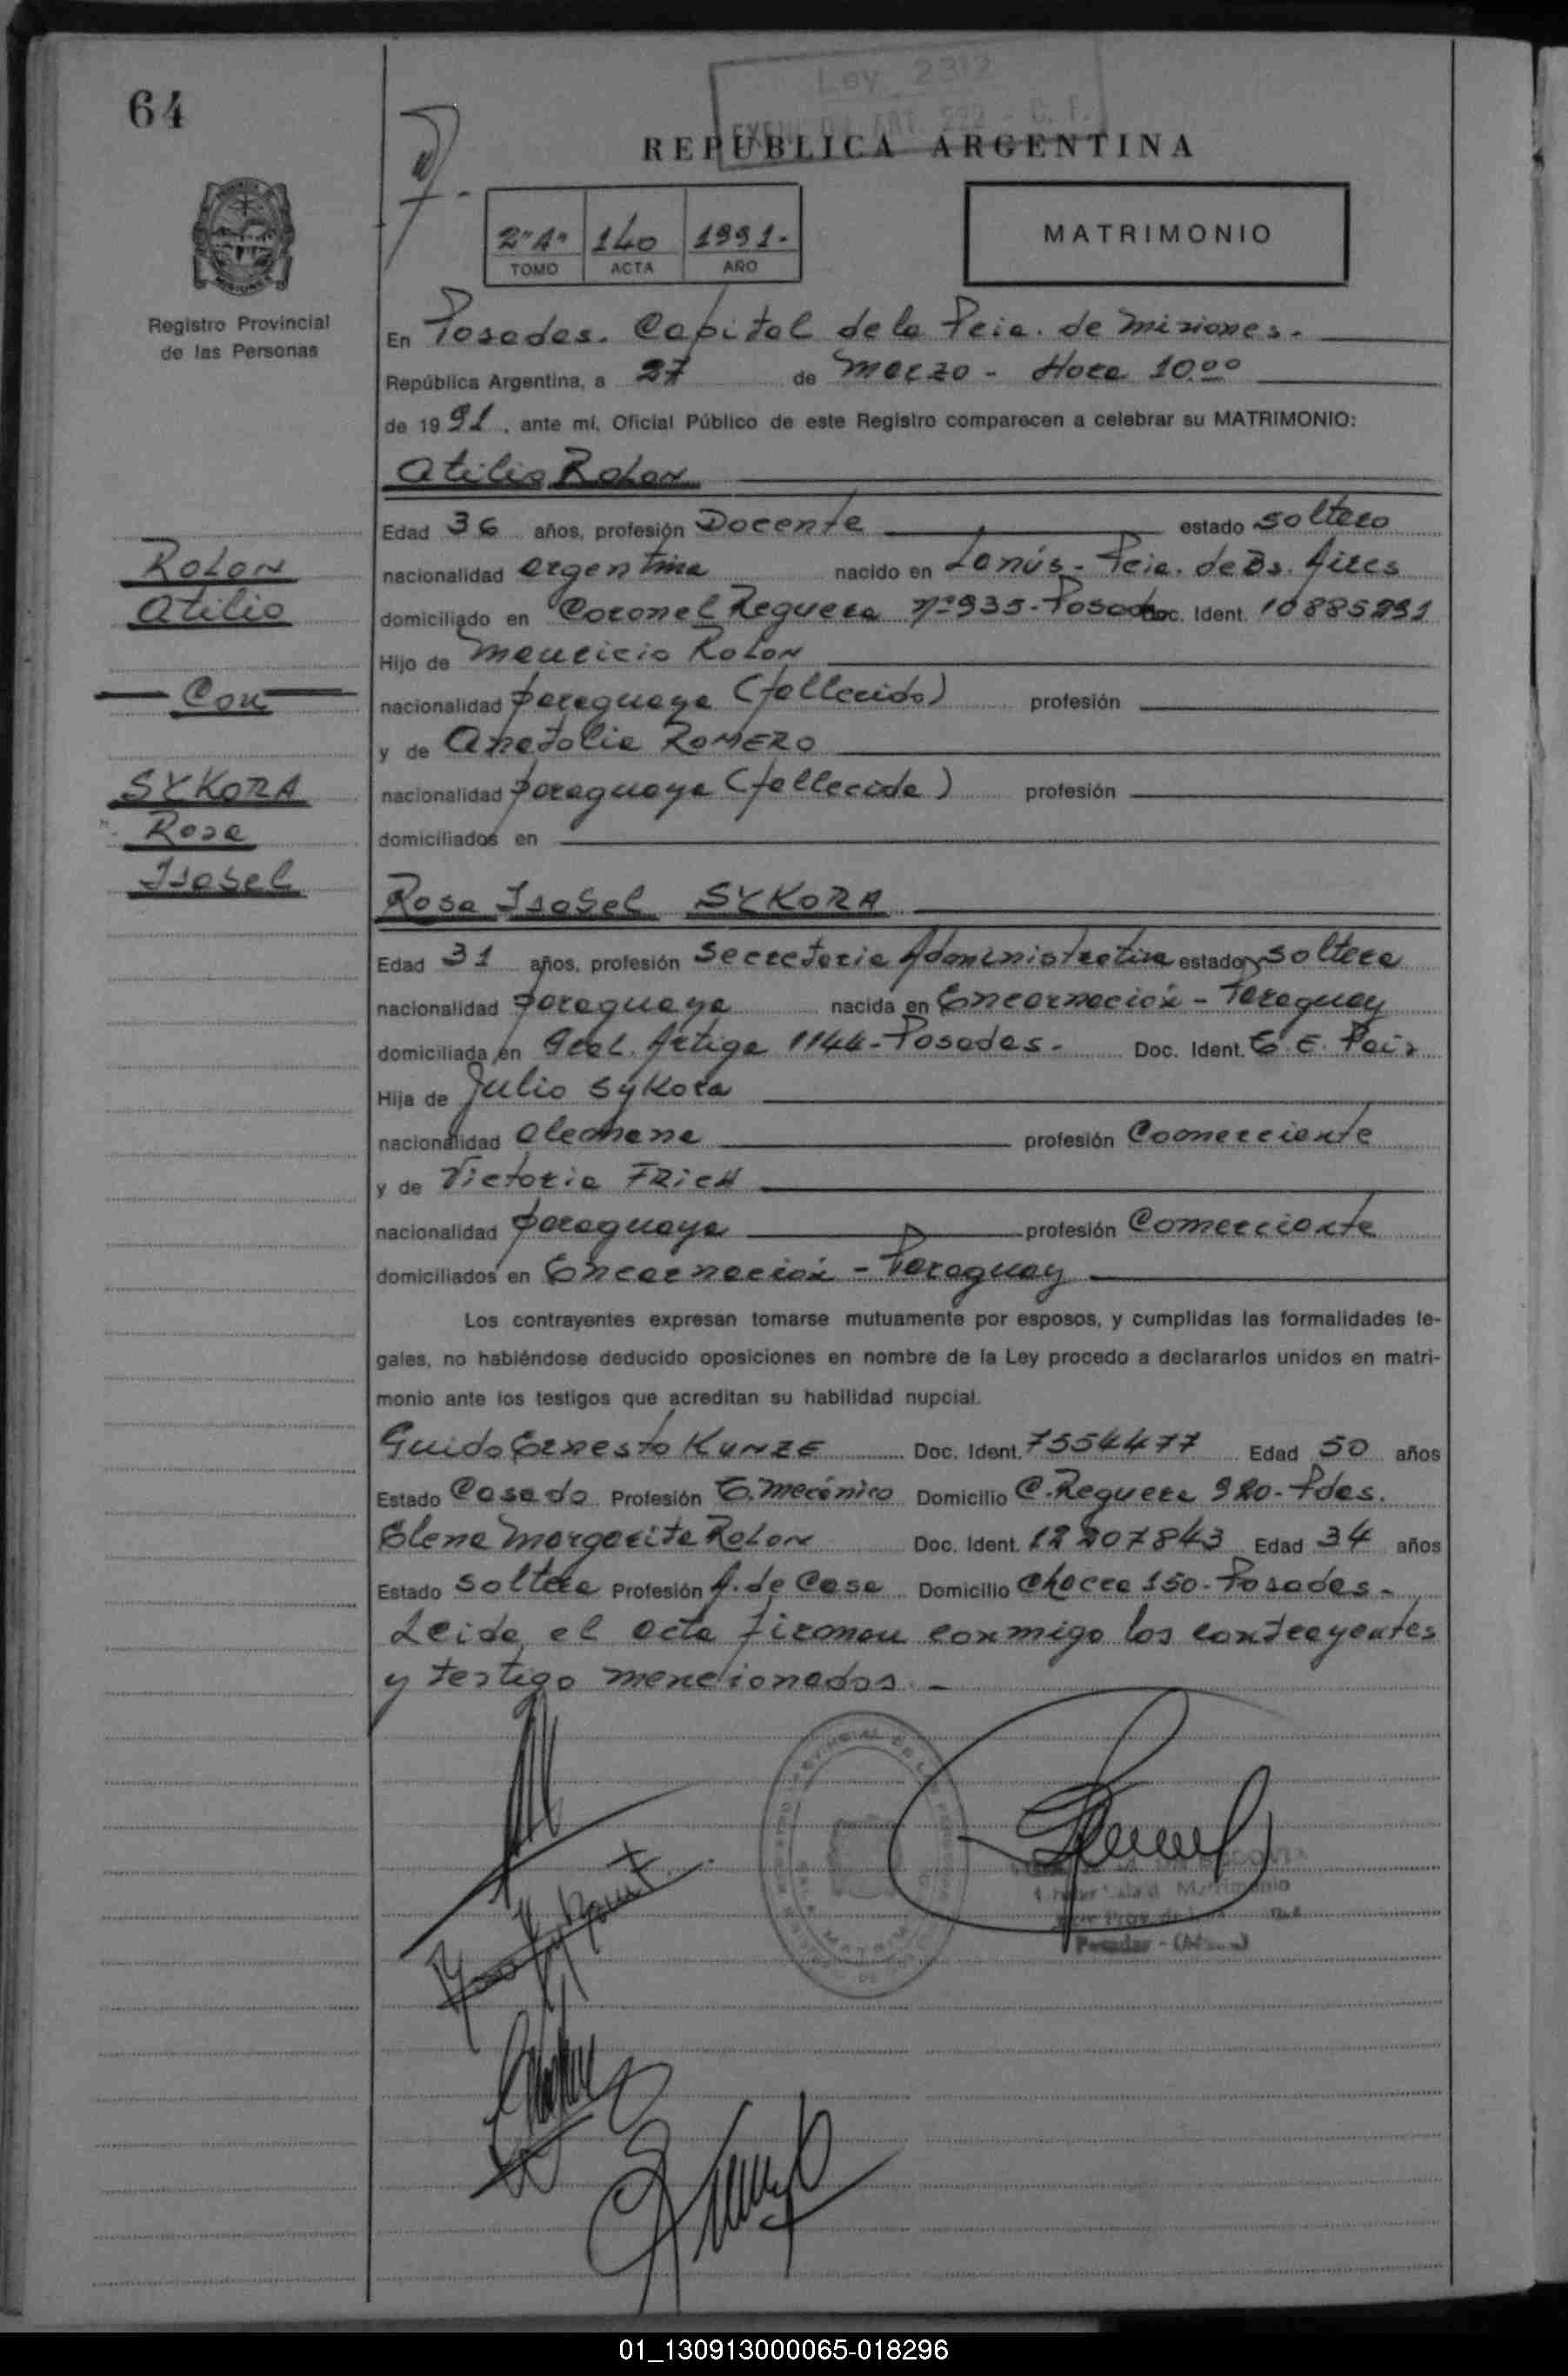 64
Ley 2312
REPUBLICA ARGENTINA
2"A" 140 1991.-
TOMO ACTA AÑO
MATRIMONIO
Registro Provincial
de las Personas
En Posadas. Capital de la Pcia. de Misiones.-
República Argentina, a 27 de Marzo - Hora 10.00
de 1991, ante mí, Oficial Público de este Registro comparecen a celebrar su MATRIMONIO:
Atilio ROLON
Edad 36 años, profesión Docente estado soltero
nacionalidad argentina nacido en Lanús - Pcia. de Bs. Aires
domiciliado en Coronel Reguera nº 935 - Posadas Doc. Ident. 10885891
Hijo de Mauricio ROLON
nacionalidad paraguaya (fallecido) profesión
y de Anatolia ROMERO
nacionalidad paraguaya (fallecida) profesión
domiciliados en
ROLON
Atilio
Con
SYKORA
Rosa
Isabel
Rosa Isabel SYKORA
Edad 31 años, profesión Secretaria Administrativa estado soltera
nacionalidad paraguaya nacida en Encarnación - Paraguay
domiciliada en Gral. Artiga 1144 - Posadas - Doc. Ident.
Hija de Julio Sykora
nacionalidad alemana profesión Comerciante
y de Victoria FRICH
nacionalidad paraguaya profesión Comerciante
domiciliados en Encarnación - Paraguay
Los contrayentes expresan tomarse mutuamente por esposos, y cumplidas las formalidades le-
gales, no habiéndose deducido oposiciones en nombre de la Ley procedo a declararlos unidos en matri-
monio ante los testigos que acreditan su habilidad nupcial.
Guido Ernesto KUNZE Doc. Ident. 7554477 Edad 50 años
Estado Casado Profesión T. mecánico Domicilio C. Reguera 920 - Pdas.
Elena Margarita ROLON Doc. Ident. 12207843 Edad 34 años
Estado soltera Profesión A. de Casa Domicilio Chacra 150 - Posadas -
Leida el acta firman conmigo los contrayentes
y testigo mencionados. -
Posadas
01_130913000065-018296